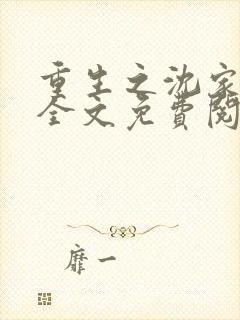 重生之沈家
全文免费阅
靡一